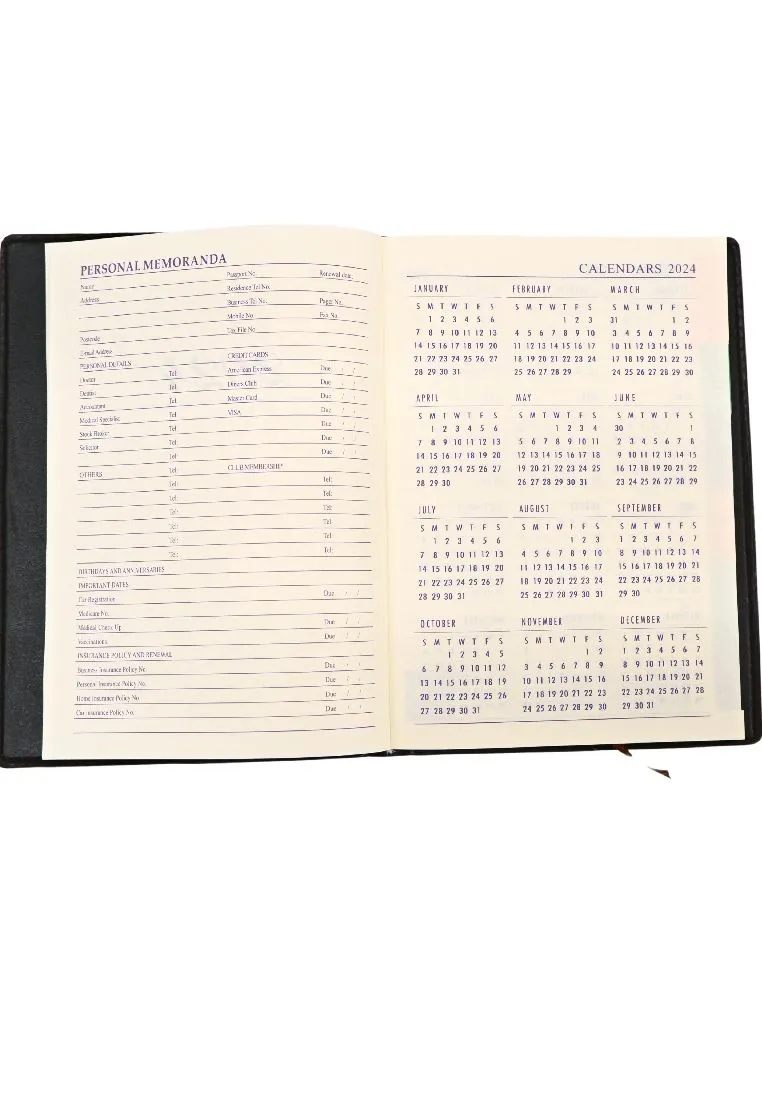 PERSONAL MEMORANDA
Name
Address
Postcode
E-mail Address
PERSONAL DETAILS
Doctor Tel:
Dentist Tel:
Accountant Tel:
Medical Specialist Tel:
Stock Broker Tel:
Solicitor Tel:
Tel:
OTHERS Tel:
Tel:
Tel:
Tel:
Tel:
Tel:
Tel:
Passport No. Renewal date
Residence Tel No.
Business Tel No. Pager No.
Mobile No. Fax No.
Tax File No
CREDIT CARDS
American Express Due / /
Diners Club Due / /
Master Card Due / /
VISA Due / /
Due / /
Due / /
Due / /
CLUB MEMBERSHIP
Tel:
Tel:
Tel:
Tel:
Tel:
Tel:
BIRTHDAYS AND ANNIVERSARIES
IMPORTANT DATES
Car Registration Due / /
Medicare No.
Medical Check Up Due / /
Vaccinations Due / /
INSURANCE POLICY AND RENEWAL
Business Insurance Policy No. Due / /
Personal Insurance Policy No. Due / /
Home Insurance Policy No. Due / /
Car Insurance Policy No. Due / /
CALENDARS 2024
JANUARY
S M T W T F S
1 2 3 4 5 6
7 8 9 10 11 12 13
14 15 16 17 18 19 20
21 22 23 24 25 26 27
28 29 30 31
FEBRUARY
S M T W T F S
1 2 3
4 5 6 7 8 9 10
11 12 13 14 15 16 17
18 19 20 21 22 23 24
25 26 27 28 29
MARCH
S M T W T F S
31 1 2
3 4 5 6 7 8 9
10 11 12 13 14 15 16
17 18 19 20 21 22 23
24 25 26 27 28 29 30
APRIL
S M T W T F S
1 2 3 4 5 6
7 8 9 10 11 12 13
14 15 16 17 18 19 20
21 22 23 24 25 26 27
28 29 30
MAY
S M T W T F S
1 2 3 4
5 6 7 8 9 10 11
12 13 14 15 16 17 18
19 20 21 22 23 24 25
26 27 28 29 30 31
JUNE
S M T W T F S
30 1
2 3 4 5 6 7 8
9 10 11 12 13 14 15
16 17 18 19 20 21 22
23 24 25 26 27 28 29
JULY
S M T W T F S
1 2 3 4 5 6
7 8 9 10 11 12 13
14 15 16 17 18 19 20
21 22 23 24 25 26 27
28 29 30 31
AUGUST
S M T W T F S
1 2 3
4 5 6 7 8 9 10
11 12 13 14 15 16 17
18 19 20 21 22 23 24
25 26 27 28 29 30 31
SEPTEMBER
S M T W T F S
1 2 3 4 5 6 7
8 9 10 11 12 13 14
15 16 17 18 19 20 21
22 23 24 25 26 27 28
29 30
OCTOBER
S M T W T F S
1 2 3 4 5
6 7 8 9 10 11 12
13 14 15 16 17 18 19
20 21 22 23 24 25 26
27 28 29 30 31
NOVEMBER
S M T W T F S
1 2
3 4 5 6 7 8 9
10 11 12 13 14 15 16
17 18 19 20 21 22 23
24 25 26 27 28 29 30
DECEMBER
S M T W T F S
1 2 3 4 5 6 7
8 9 10 11 12 13 14
15 16 17 18 19 20 21
22 23 24 25 26 27 28
29 30 31